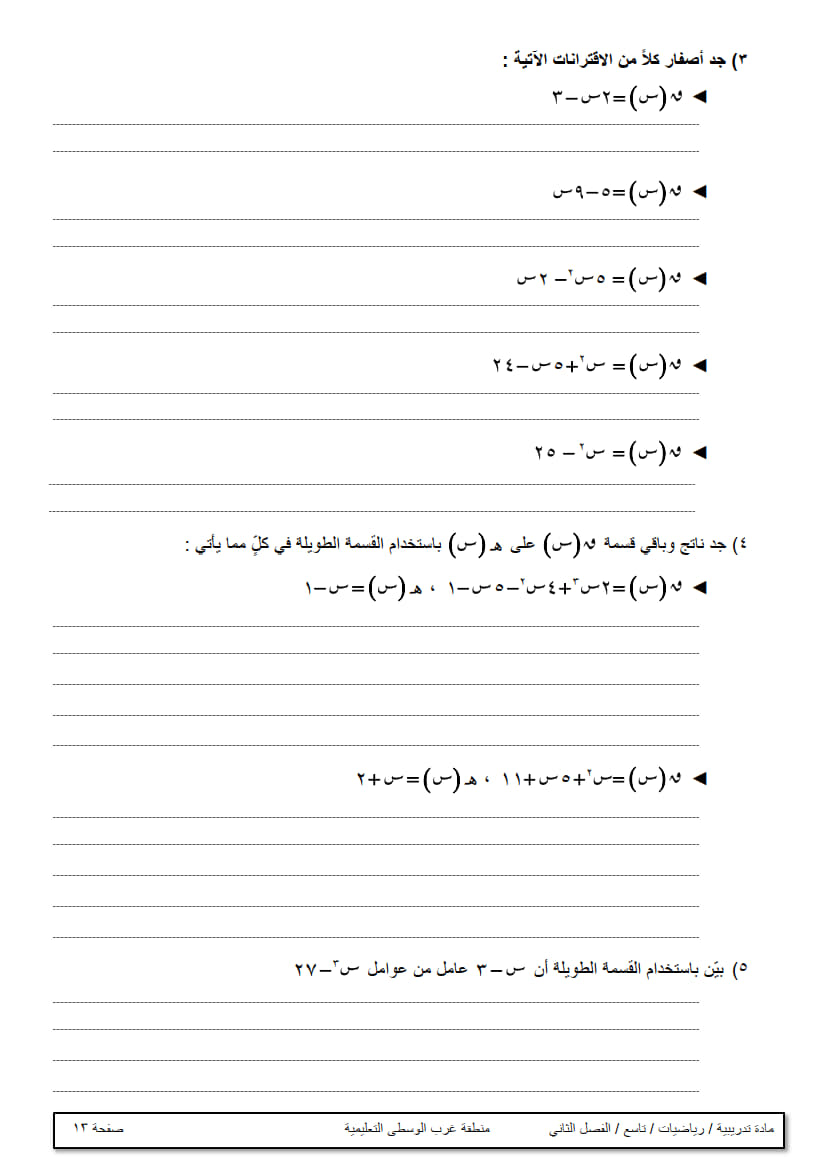 ٣) جد أصفار كلاً من الاقترانات الآتية :
◄ ق(س)=٢س−٣
◄ ق(س)=٥−٩س
◄ ق(س)= ٥س²− ٢س
◄ ق(س)= س²+٥س−٢٤
◄ ق(س)= س²− ٢٥
٤) جد ناتج وباقي قسمة ق(س) على هـ(س) باستخدام القسمة الطويلة في كلٍّ مما يأتي :
◄ ق(س)=٢س³+٤س²−٥س−١ ، هـ(س)=س−١
◄ ق(س)=س²+٥س+١١ ، هـ(س)=س+٢
٥) بيّن باستخدام القسمة الطويلة أن س−٣ عامل من عوامل س³−٢٧
مادة تدريبية / رياضيات / تاسع / الفصل الثاني منطقة غرب الوسطى التعليمية صفحة ١٣